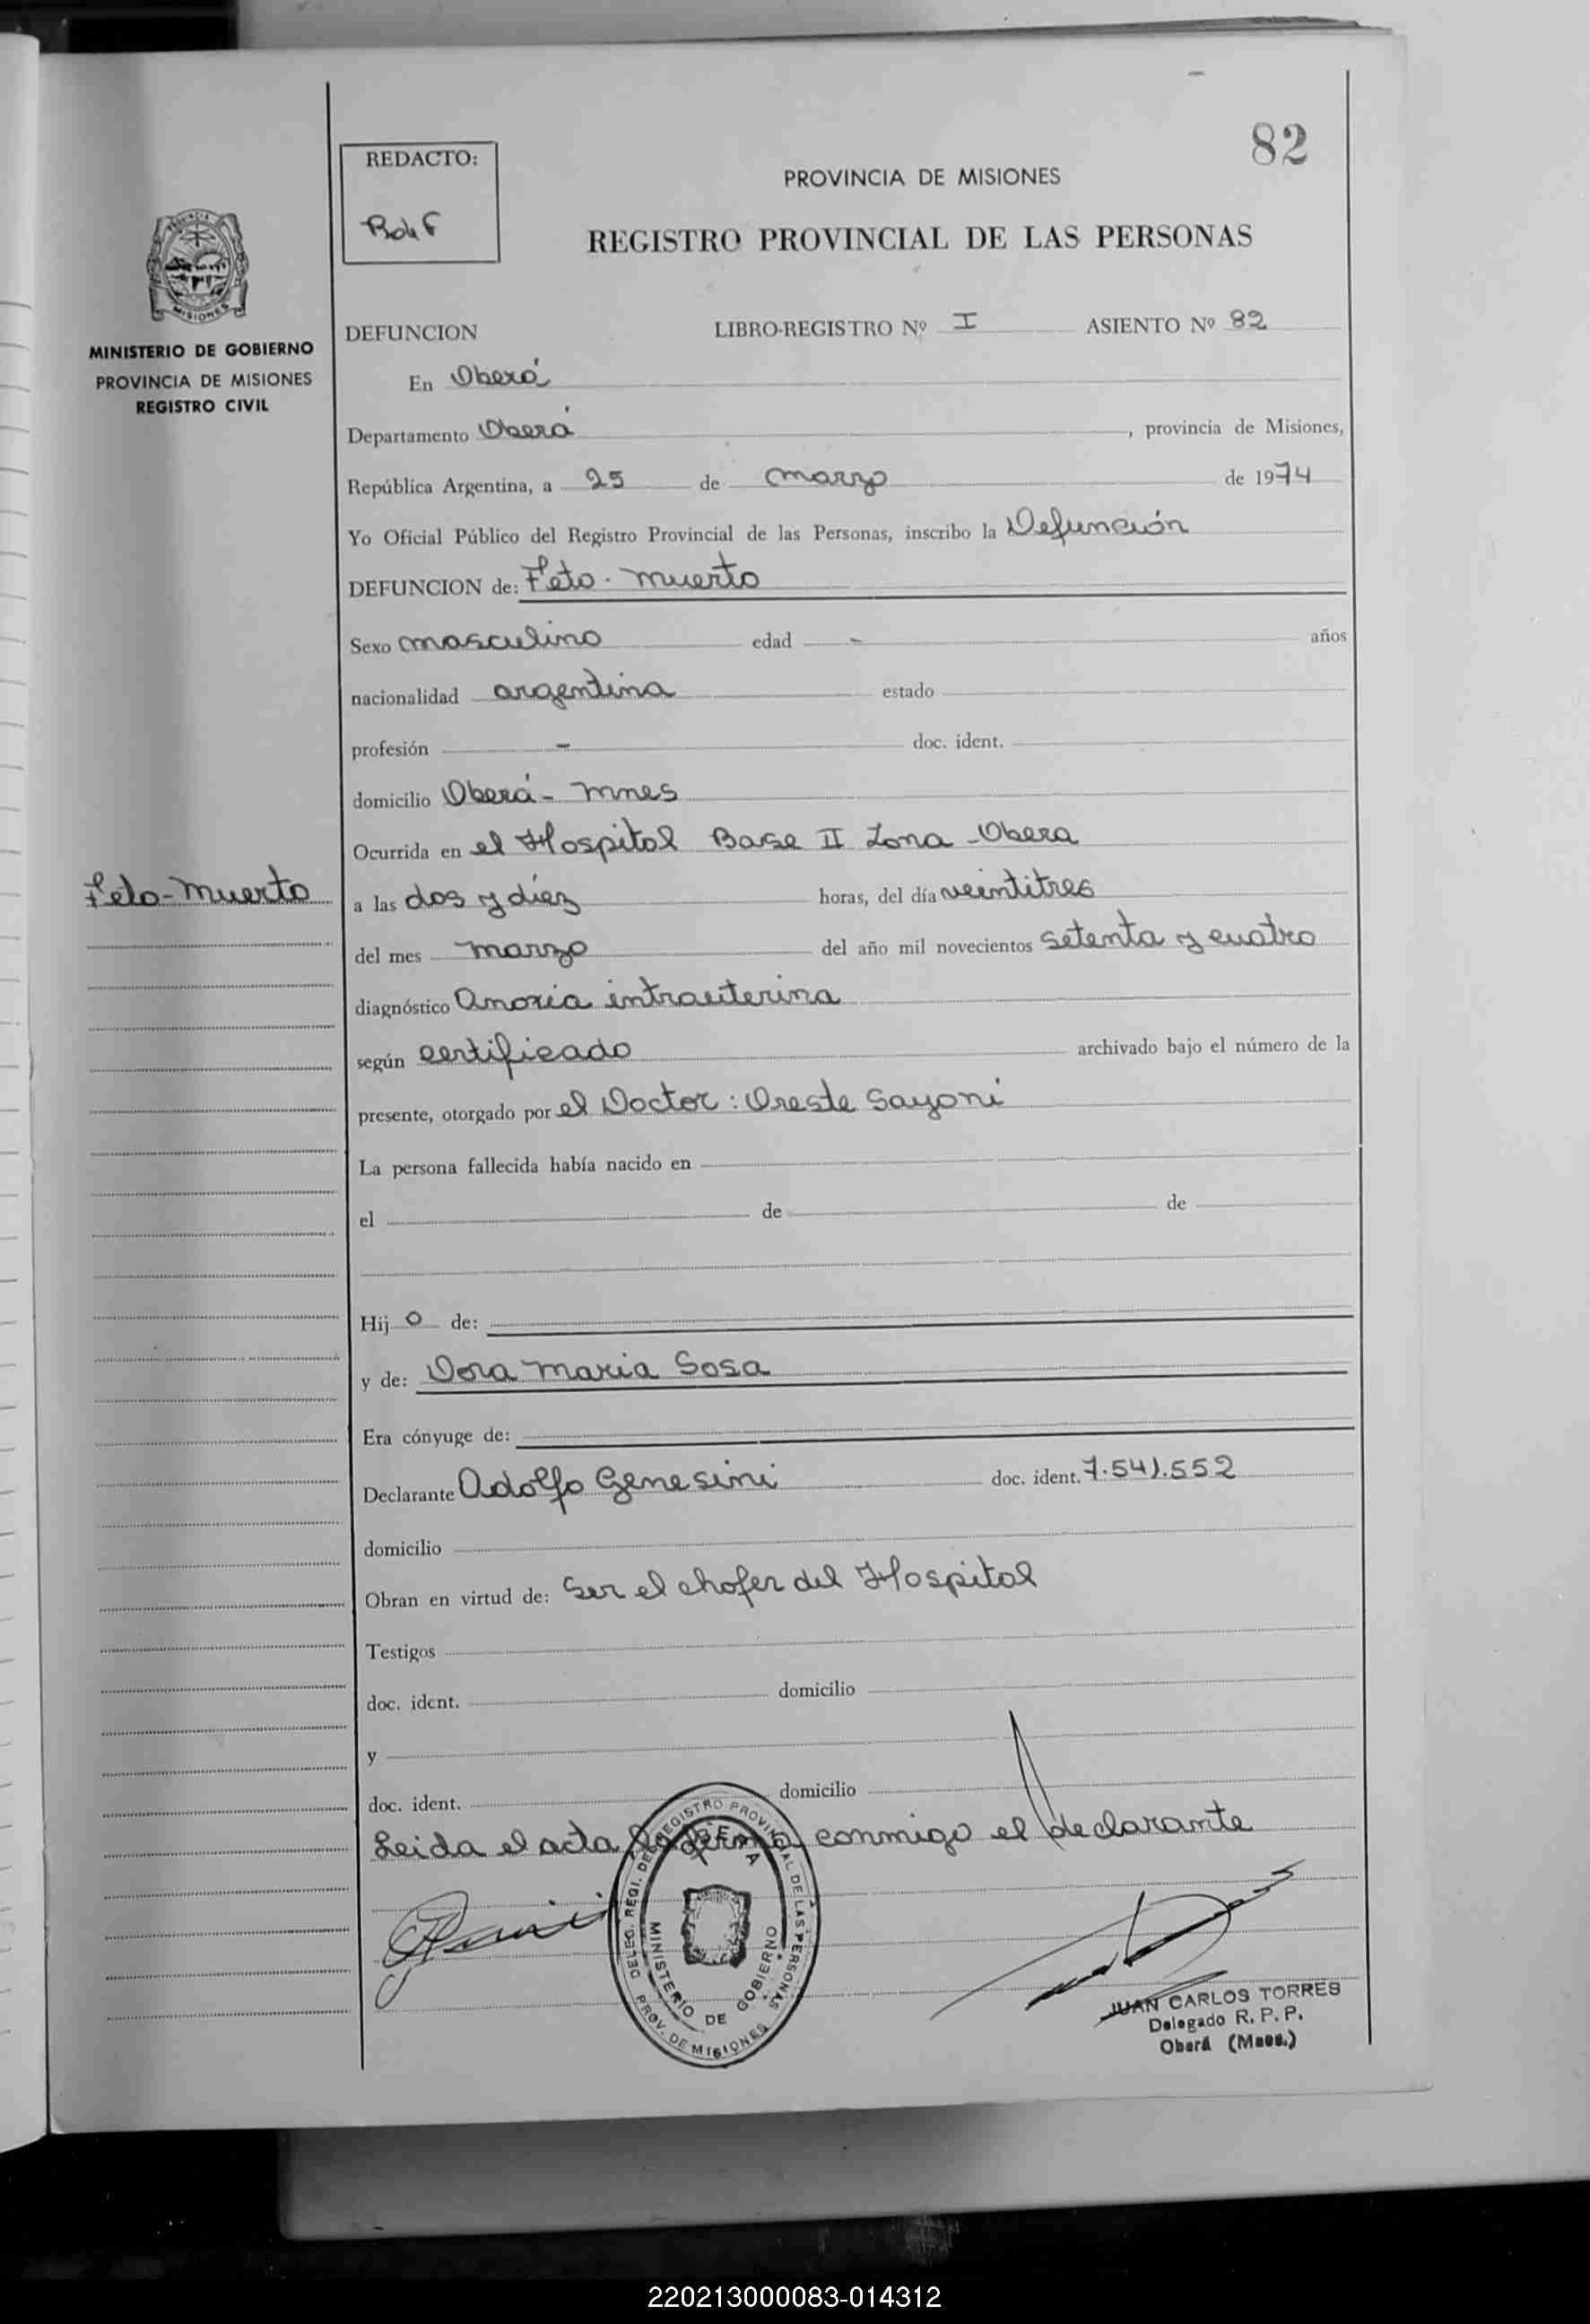 82
REDACTO:
PROVINCIA DE MISIONES
REGISTRO PROVINCIAL DE LAS PERSONAS
PROVINCIA
MISIONES
MINISTERIO DE GOBIERNO
PROVINCIA DE MISIONES
REGISTRO CIVIL
DEFUNCION LIBRO-REGISTRO Nº I ASIENTO Nº 82
En Oberá
Departamento Oberá, provincia de Misiones,
República Argentina, a 25 de marzo de 1974
Yo Oficial Público del Registro Provincial de las Personas, inscribo la Defunción
DEFUNCION de: Feto - muerto
Sexo masculino edad - años
nacionalidad argentina estado
profesión - doc. ident.
domicilio Oberá - mnes
Ocurrida en el Hospital Base II Zona - Obera
Feto - Muerto
a las dos y diez horas, del día veintitres
del mes marzo del año mil novecientos setenta y cuatro
diagnóstico Anoxia intrauterina
según certificado archivado bajo el número de la
presente, otorgado por el Doctor: Oreste Sayoni
La persona fallecida había nacido en
el de de
Hij o de:
y de: Dora Maria Sosa
Era cónyuge de:
Declarante Adolfo Genesini doc. ident. 7.541.552
domicilio
Obran en virtud de: Ser el chofer del Hospital
Testigos
doc. ident. domicilio
y
doc. ident. domicilio
Leida el acta la firma conmigo el declarante
DELEG. REGI. DEL REGISTRO PROVINCIAL DE LAS PERSONAS
PROV. DE MISIONES
OBERA
MINISTERIO DE GOBIERNO
JUAN CARLOS TORRES
Delegado R. P. P.
Oberá (Mnes.)
220213000083-014312